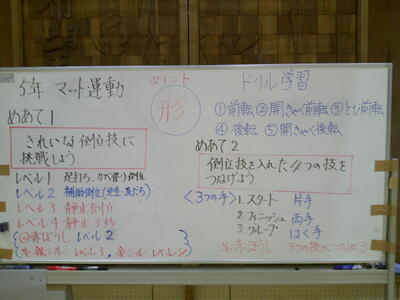 5年 マット運動
ポイント
形
ドリル学習
①前転②開きゃく前転③とび前転
④後転 ⑤開きゃく後転
めあて1
きれいな倒立技に
挑戦しよう。
レベル1 足打ち、かべ登り倒立
レベル2 補助倒立(先生・友だち)
レベル3 静止倒立
レベル4 静止3秒
赤ぼうし レベル2
銀シール レベル3、金シール レベル
めあて2
倒立技を入れた4つの技を
つなげよう。
<3つの手>
1. スタート 片手
2. フィニッシュ 両手
3. グループ はく手
赤ぼうし 3つの技が